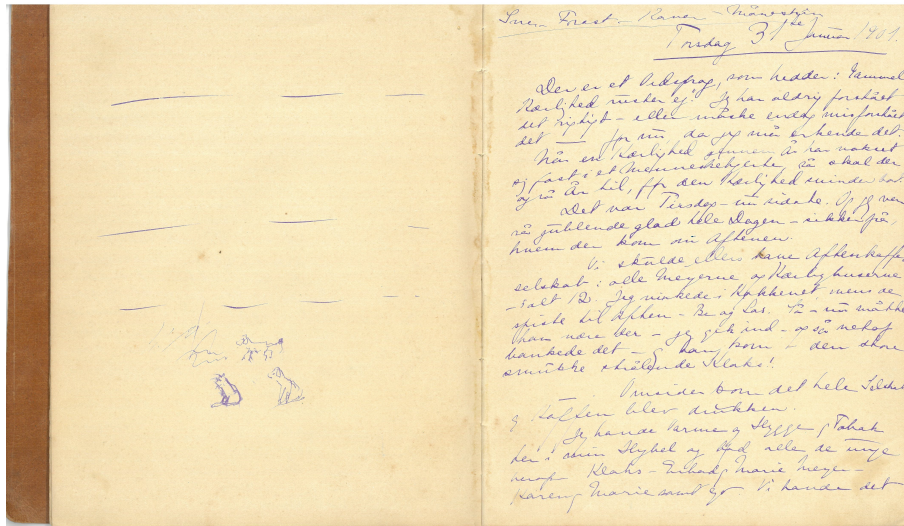 Sne - Frost - Raner - Måneskin
Torsdag 31te Januar 1901.
Der er et Ordsprog, som hedder: Gammel
Kærlighed ruster ej! Jeg har aldrig forstået
det rigtigt - eller måske endog misforstået
det — før nu, da jeg må erkende det.
Når en Kærlighed gennem År har vokset
sig fast i et Menneskehjerte, så skal der
også År til, før den Kærlighed svinder bort.
Det var Tirsdag - nu sidste. Og jeg var
så jublende glad hele Dagen - sikken på,
hvem der kom om Aftenen.
Vi skulde ellers have Aftenkaffe
selskab: alle Meyerne og Kærbyhuserne
- ialt 12. Jeg virkede i Køkkenet mens de
spiste til Aften - Be og Las. Så - nu måtte
han være her - jeg gik ind - og så netop
bankede det - og han kom - den store
smukke strålende Klaks!
Omsider kom det hele Selskab
og Kaffen blev drukken.
Jeg havde Varme og Hygge og Tobak
her i min Hybel og bød alle de unge
herop Klaks - Marie Meyer -
Karen, Marie samt jeg. Vi havde det